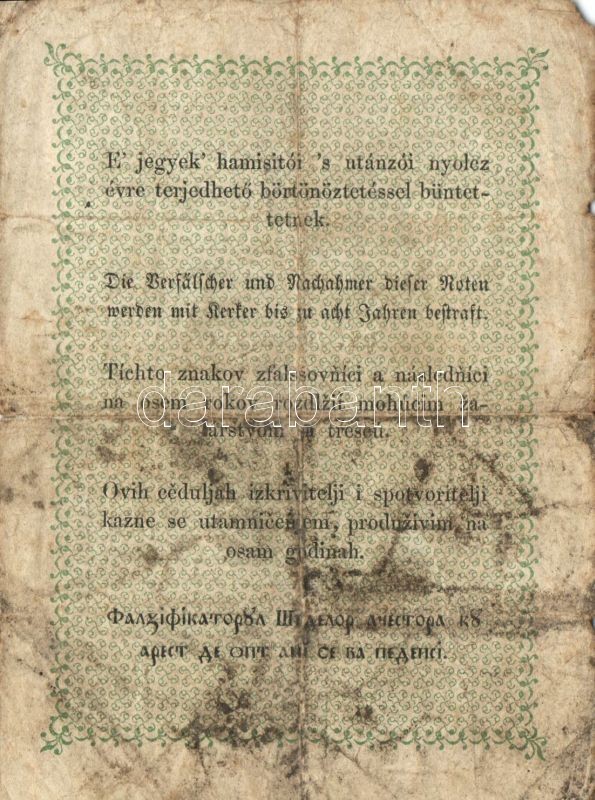 E' jegyek' hamisitói 's utánzói nyolcz
évre terjedhető börtönöztetéssel büntet-
tetnek.
Die Verfälscher und Nachahmer dieser Noten
werden mit Kerker bis zu acht Jahren bestraft.
Tíchto znakov zfalšovňíci a následňíci
na osem rokov rozdlžiť mohúcim ža-
lárstvom sa trescú.
darabanth
Ovih cěduljah izkrivitelji i spotvoritelji
kazne se utamničenjem, produživim na
osam godinah.
Фалзіфікаторꙋл Шіделор ачестора кꙋ
арест де опт ані се ва педепсі.